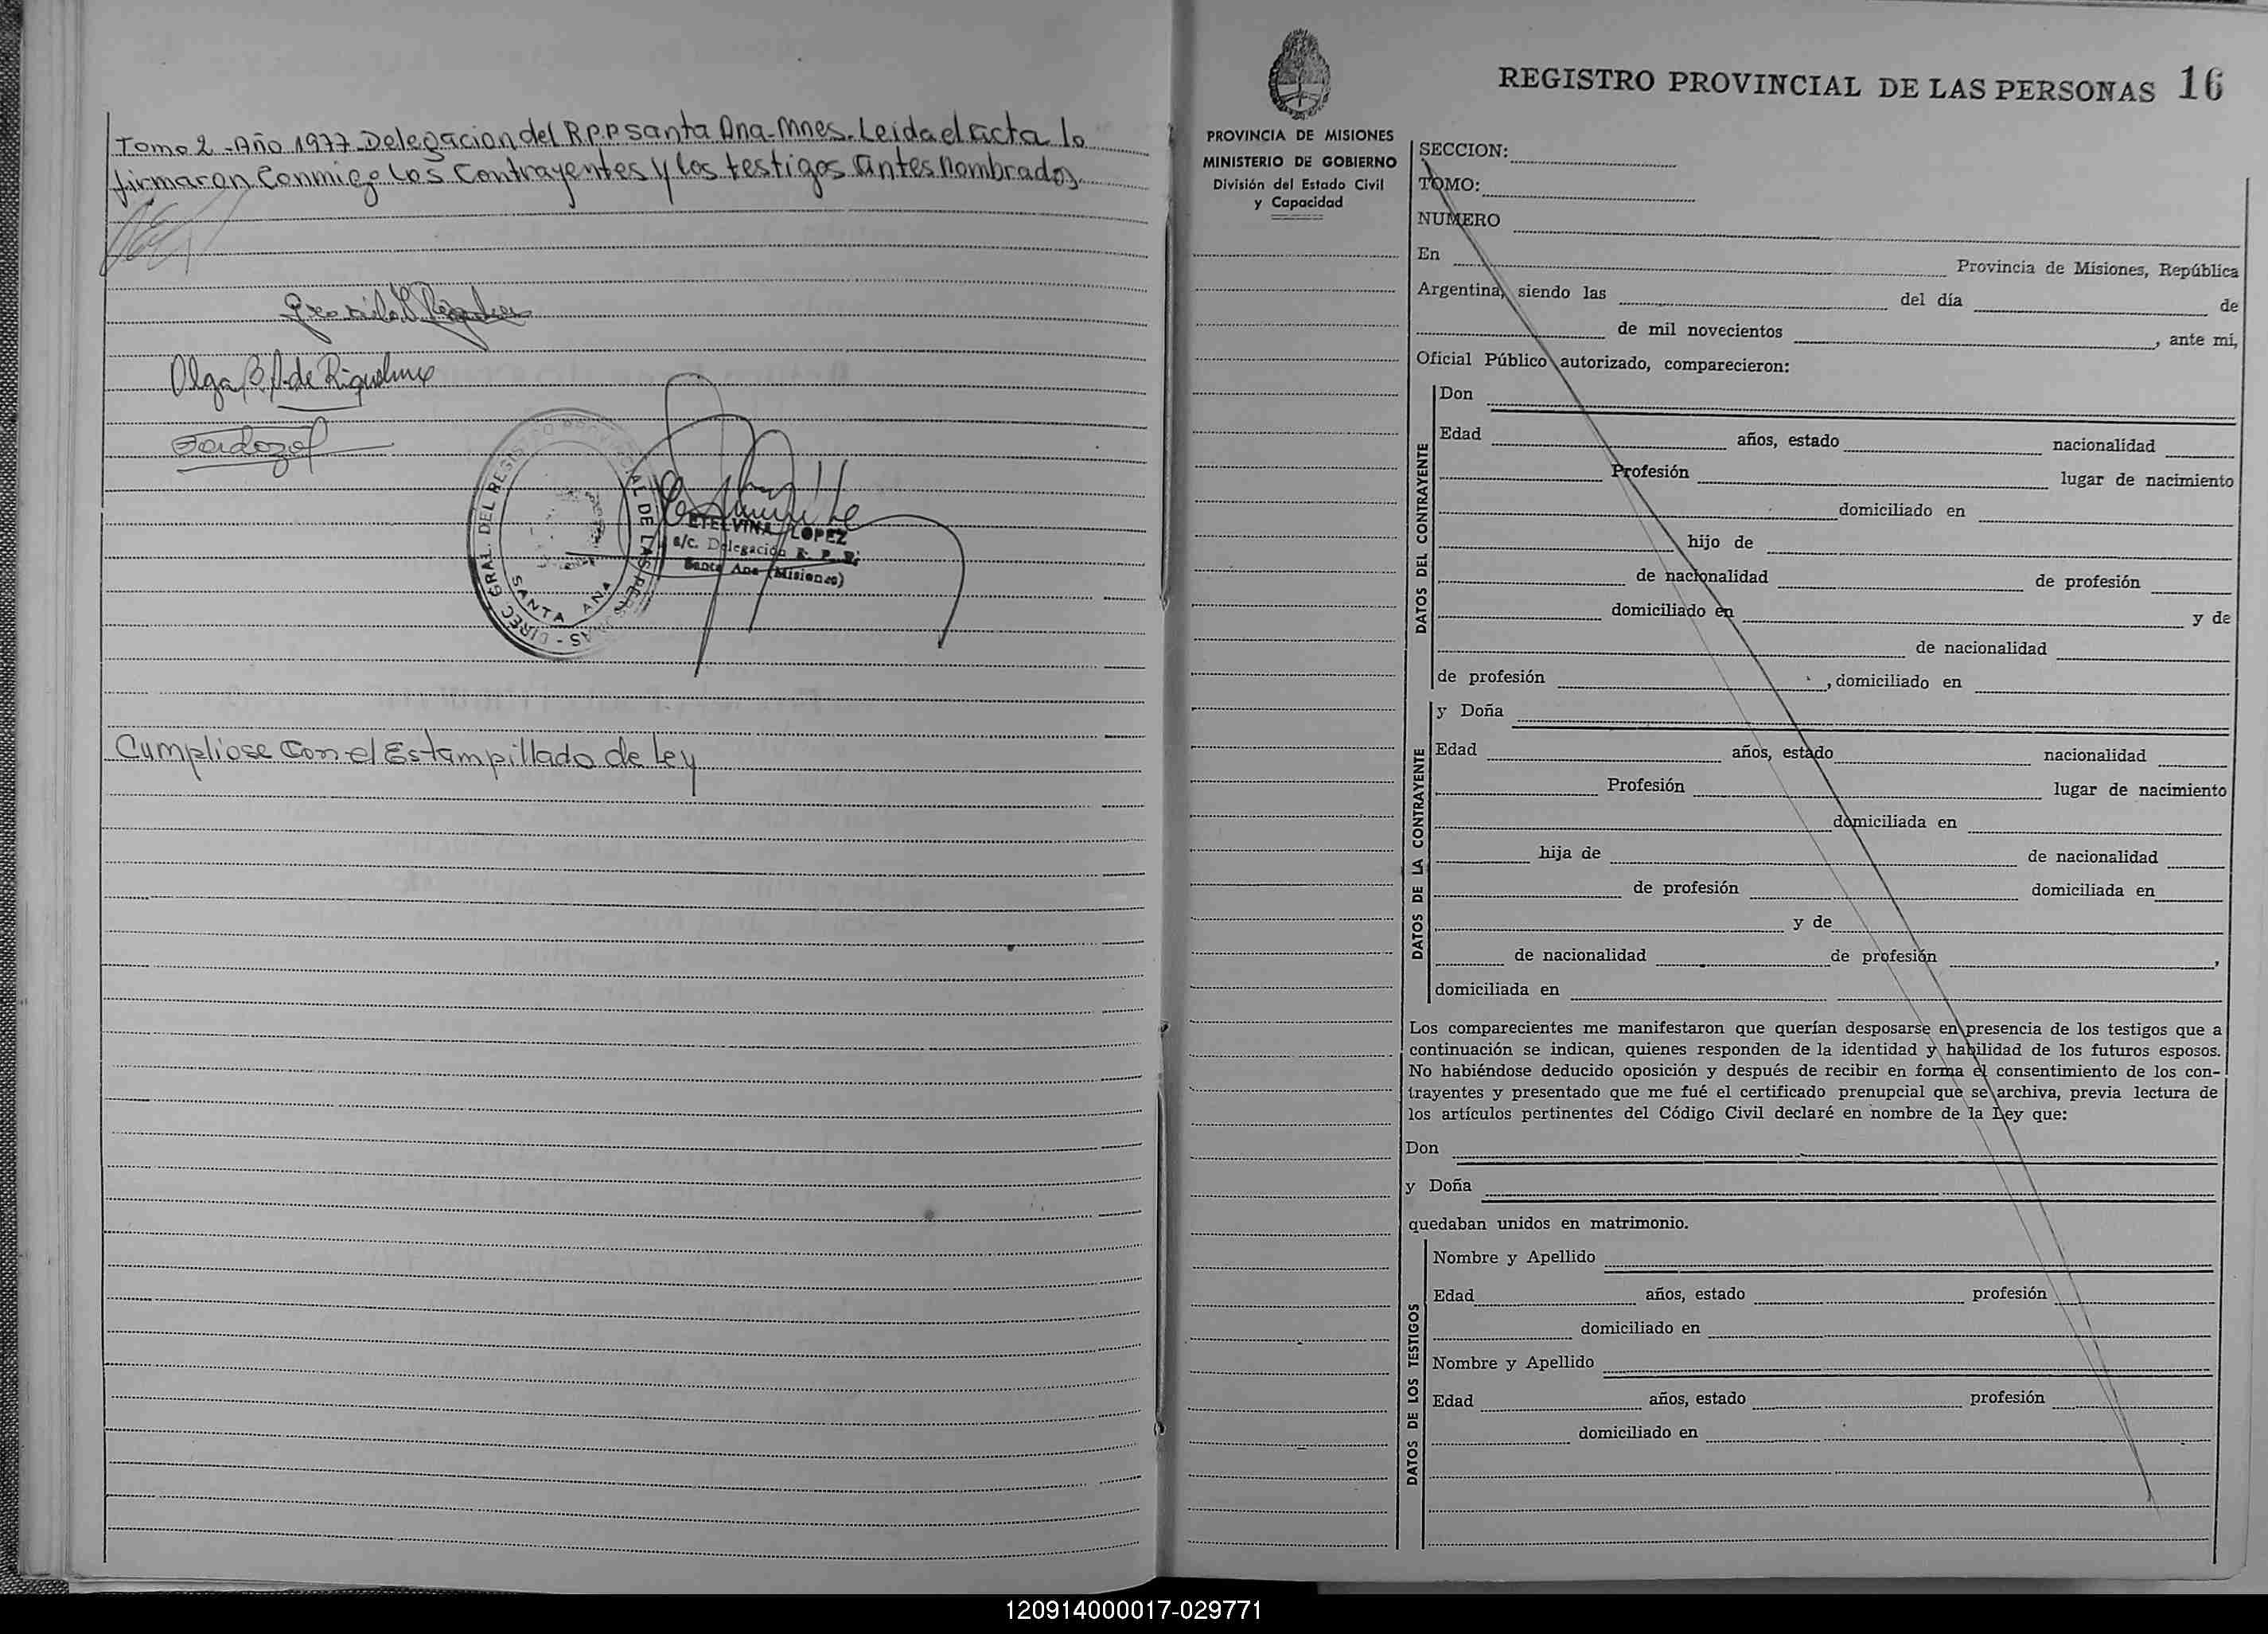 Tomo 2 - Año 1977 - Delegacion del R.P.P santa Ana - Mnes. Leida el acta lo
firmaron Conmigo los Contrayentes y los testigos antes Nombrados
Olga B. A. de Riquelme
DIREC. GRAL. DEL REGISTRO PROVINCIAL DE LAS PERSONAS -
SANTA ANA
ETELVINA LOPEZ
a/c. Delegación R. P. P.
Santa Ana (Misiones)
Cumpliose Con el Estampillado de Ley
REGISTRO PROVINCIAL DE LAS PERSONAS 16
PROVINCIA DE MISIONES
MINISTERIO DE GOBIERNO
División del Estado Civil
y Capacidad
SECCION:
TOMO:
NUMERO
En Provincia de Misiones, República
Argentina, siendo las del día de
de mil novecientos , ante mí,
Oficial Público autorizado, comparecieron:
DATOS DEL CONTRAYENTE
Don
Edad años, estado nacionalidad
Profesión lugar de nacimiento
domiciliado en
hijo de
de nacionalidad de profesión
domiciliado en y de
de nacionalidad
de profesión , domiciliado en
DATOS DE LA CONTRAYENTE
y Doña
Edad años, estado nacionalidad
Profesión lugar de nacimiento
domiciliada en
hija de de nacionalidad
de profesión domiciliada en
y de
de nacionalidad de profesión ,
domiciliada en
Los comparecientes me manifestaron que querían desposarse en presencia de los testigos que a
continuación se indican, quienes responden de la identidad y habilidad de los futuros esposos.
No habiéndose deducido oposición y después de recibir en forma el consentimiento de los con-
trayentes y presentado que me fué el certificado prenupcial que se archiva, previa lectura de
los artículos pertinentes del Código Civil declaré en nombre de la Ley que:
Don
y Doña
quedaban unidos en matrimonio.
DATOS DE LOS TESTIGOS
Nombre y Apellido
Edad años, estado profesión
domiciliado en
Nombre y Apellido
Edad años, estado profesión
domiciliado en
120914000017-029771